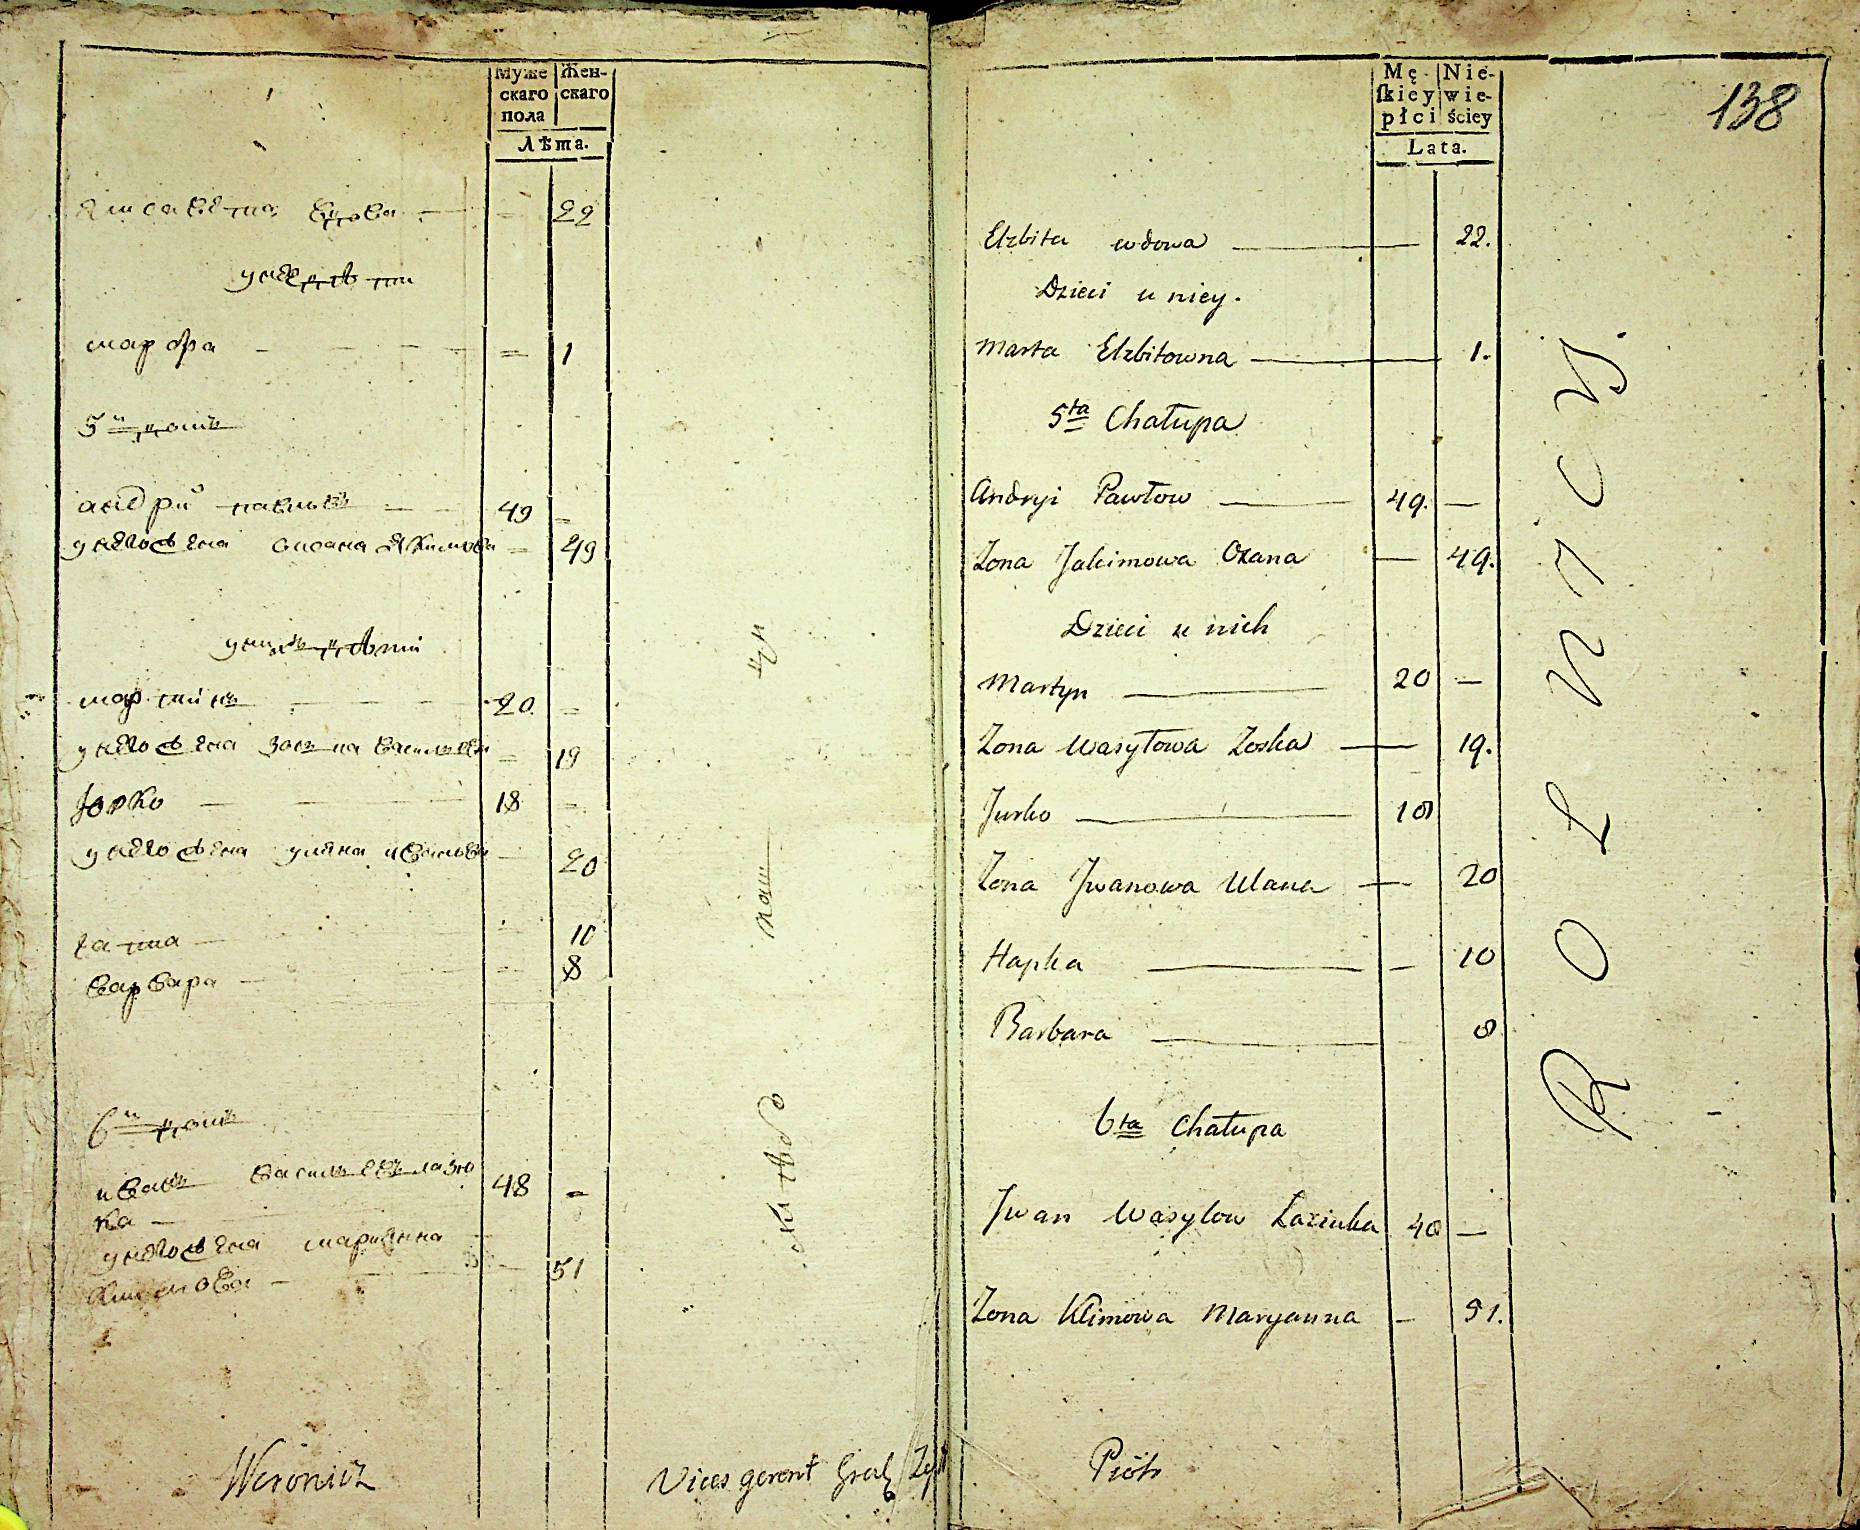 Муже
скаго
пола
Жен-
скаго
Лѣта.
вдова — 22
марѳа — 1
5й домъ
андрій павловъ — 49
у него жена оксана Якимова — 49
у нихъ дѣти
мартинъ — 20
у него жена зоська васильева — 19
Юрко — 18
у него жена уляна иванова — 20
гапка — 10
варвара — 8
6й домъ
иванъ васильевъ лазю
ка — 48
у него жена марианна
климова — 51
Weronicz
Vices gerent
138
Mę-
ſkiey
płci
Nie-
wie-
ściey
Lata.
Elzbita wdowa — 22.
Dzieci u niey.
Marta Elzbitowna — 1.
5ta Chałupa
Andryi Pawłow — 49. —
Zona Jakimowa Oxana — 49.
Dzieci u nich
Martyn — 20 —
Zona Wasyłowa Zoska — 19.
Jurko — 18
Zona Jwanowa Ulana — 20
Hapka — 10
Barbara — 8
6ta Chałupa
Jwan Wasylow Laziuka 48 —
Zona Klimowa Maryanna — 51.
Piotr
ROLNICY.